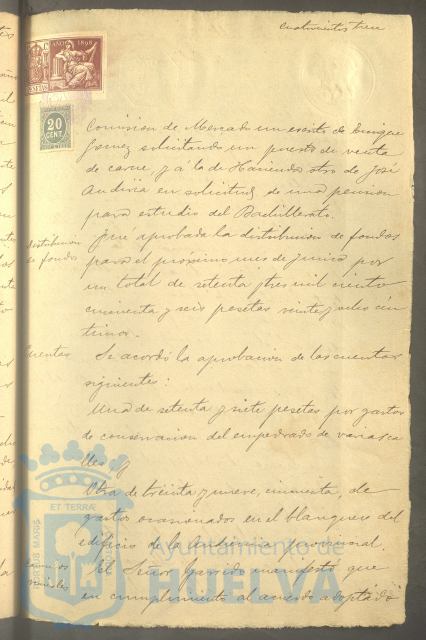 AÑO 1898
PESETAS
20
CENT.
Comision de Mercado un escrito de Enrique
Gomez solicitando un puesto de venta
de carne, y á la de Hacienda otro de José
en solicitud de una pension
para estudio del Bachillerato.
distribucion
de fondos
Fué aprobada la distribucion de fondos
para el proximo mes de Junio por
un total de setenta y tres mil ciento
cincuenta y seis pesetas veinte y ocho cen
timos.
Cuentas
Se acordó la aprobacion de las cuentas
siguientes:
Una de setenta y siete pesetas por gastos
de conservacion del empedrado de varias ca
lles
Otra de treinta y nueve, cincuenta, de
gastos ocasionados en el blanqueo del
edificio de la Audiencia provincial.
El Señor Garrido manifestó que
en cumplimiento al acuerdo adoptado
ET TERRA
PORTUS MARIS
Ayuntamiento de
HUELVA